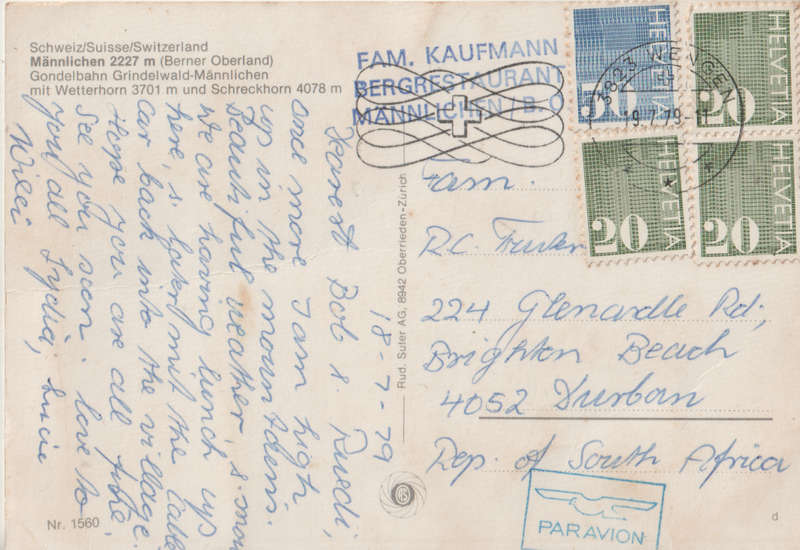 Schweiz/Suisse/Switzerland
Männlichen 2227 m (Berner Oberland)
Gondelbahn Grindelwald-Männlichen
mit Wetterhorn 3701 m und Schreckhorn 4078 m
FAM. KAUFMANN
BERGRESTAURANT
MÄNNLICHEN / B. O
HELVETIA
50
HELVETIA
20
HELVETIA
20
HELVETIA
20
3823 WENGEN
19.7.79-11
18-7-79
Dearest Bob & Ruedi,
once more I am high
up in the mountains.
Beautiful weather & snow
We are having lunch up
here, & later mit the cable
car back into the village.
Hope you are all fine,
See you soon. love to
you all Lydia, Lucie
Willi
Fam.
R.C.
224 Glenardle Rd;
Brighton Beach
4052 Durban
Rep. of South Africa
PAR AVION
Rud. Suter AG, 8942 Oberrieden-Zürich
Nr. 1560
d